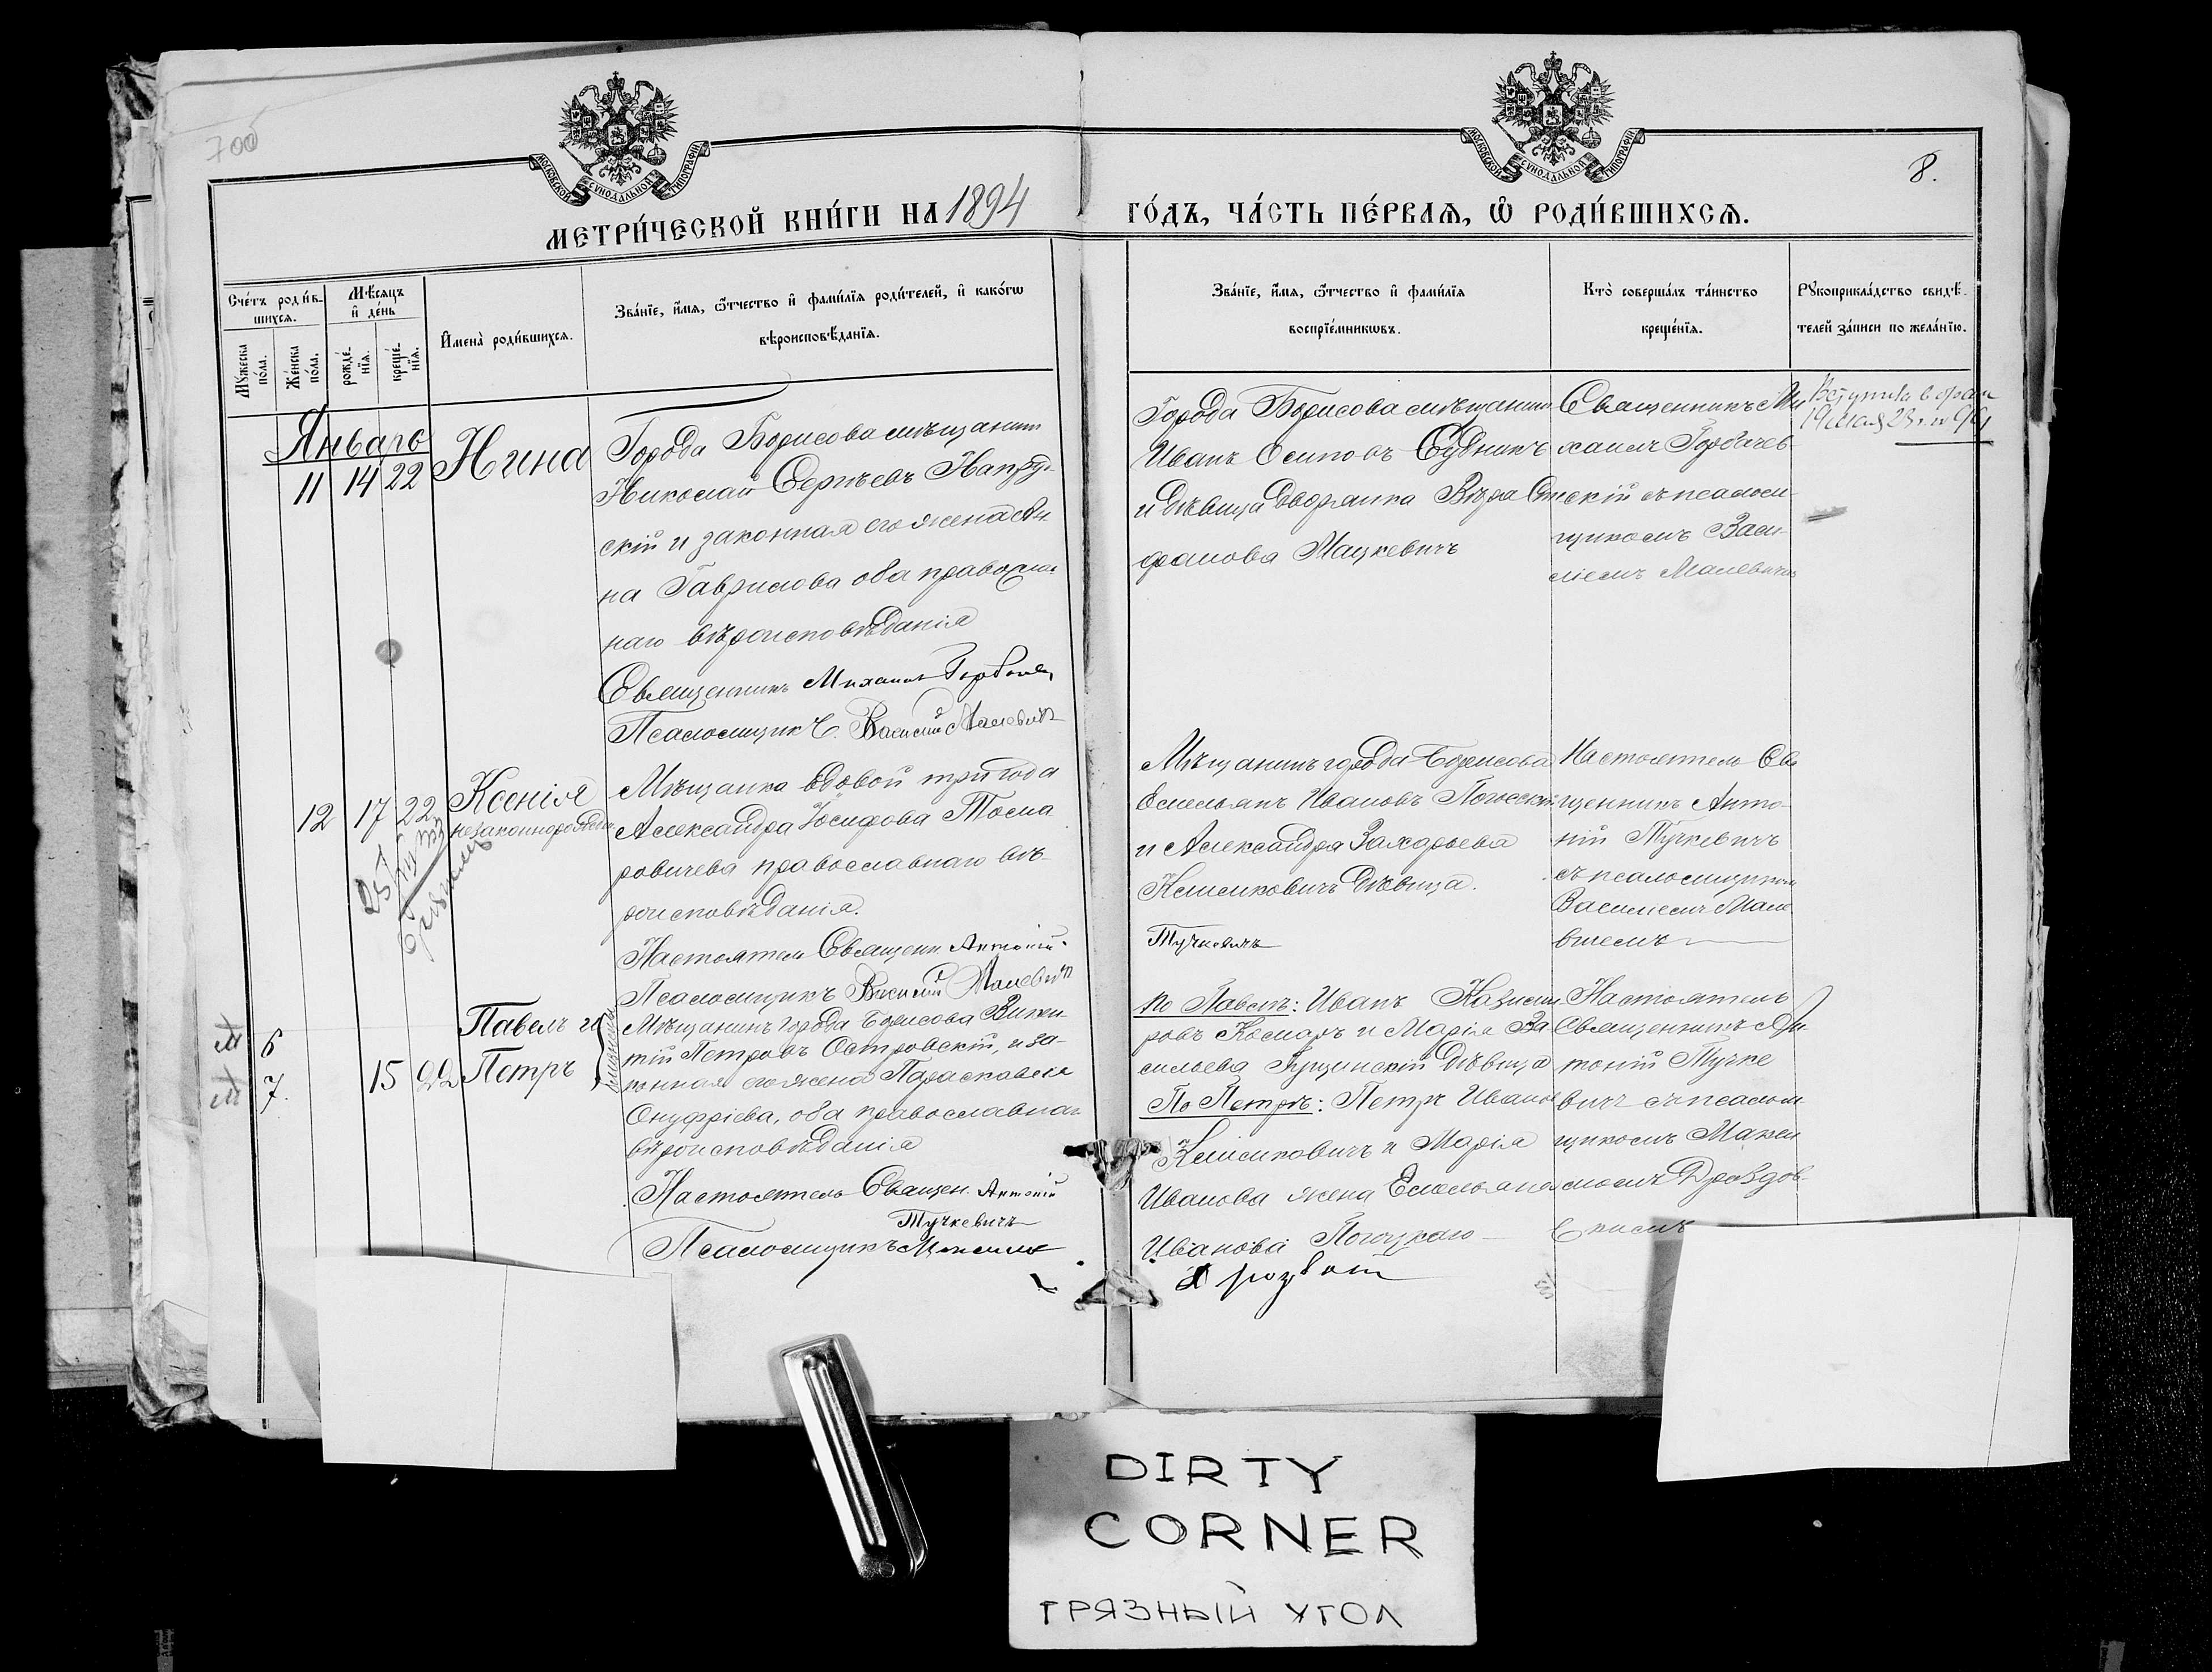 700
8.
МОСКОВСКОЙ СѴНОДАЛЬНОЙ ТИПОГРАФІИ
МОСКОВСКОЙ СѴНОДАЛЬНОЙ ТИПОГРАФІИ
МЕТРИ́ЧЕСКОЙ КНИ́ГИ НА 1894
ГО́ДЪ, ЧА́СТЬ ПЕ́РВАѦ, Ѡ҆ РОДИ́ВШИХСѦ.
Сче́тъ роди́в-
шихсѧ.
Мѹ́жеска по́ла.
Же́нска по́ла.
Мѣ́сѧцъ
и҆ де́нь
рожде́-
нїѧ.
креще́-
нїѧ.
И҆мена̀ роди́вшихсѧ.
Зва́нїе, и҆́мѧ, ѻ҆́тчество и҆ фами́лїѧ роди́телей, и҆ како́гѡ
вѣроисповѣ́данїѧ.
Зва́нїе, и҆́мѧ, ѻ҆́тчество и҆ фами́лїѧ
воспрїе́мникѡвъ.
Кто̀ соверша́лъ та́инство
креще́нїѧ.
Рꙋкоприкла́дство свидѣ́-
телей за́писи по жела́нїю.
Январь
11 14 22 Нина
Города Борисова мѣщанинъ
Николай Сергѣевъ
скій и законная его жена Ан
на Гаврилова оба православ
наго вѣроисповѣданія
Священникъ Михаилъ
Псаломщикъ Василій Малевичъ
Города Борисова мѣщанинъ
Иванъ Осиповъ Судникъ
и дѣвица дворянка Вѣра Сте
фанова Мацкевичъ
Священникъ Ми
хаилъ Горбачев
скій съ псалом
щикомъ Васи
ліемъ Малевичемъ
12 17 22 Ксенія
незаконнорожден
Мѣщанка вдовой три года
Александра Іосифова
ровичева православнаго вѣ-
роисповѣданія.
Настоятель Священ. Антоній
Псаломщикъ Василій Малевичъ
Мѣщанинъ города Борисова
Емельянъ Ивановъ
и Александра Захарьева
Климковичъ дѣвица.
Тучкевичъ
Настоятель Свя
щенникъ Анто-
ній Тучкевичъ
съ псаломщикомъ
Василіемъ Мале
вичемъ
6
7.
15 22
Павелъ и
Петръ
близнецы
Мѣщанинъ города Борисова Викен
тій Петровъ Островскій, и за-
конная его жена Параскева
Онуфріева, оба православнаго
вѣроисповѣданія
Настоятель Священ. Антоній
Тучкевичъ
Псаломщикъ Максимъ
По Павлѣ: Иванъ Казими
ровъ Комаръ и Марія Ва
сильева дѣвица
По Петрѣ: Петръ Ивановъ
Климковичъ и Марія
Иванова жена Емельяна
Иванова
Настоятель
Священникъ Ан
тоній Тучке
вичъ съ псалом
щикомъ Макси
момъ Дроздов
скимъ
DIRTY
CORNER
ГРЯЗНЫЙ УГОЛ